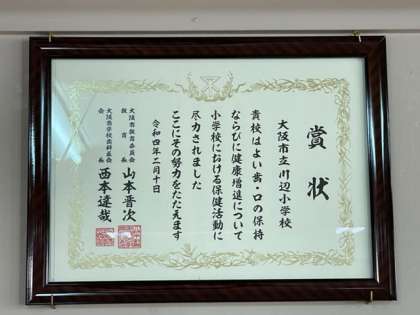 賞状
大阪市立川辺小学校
貴校はよい歯・口の保持
ならびに健康増進について
小学校における保健活動に
尽力されました
ここにその努力をたたえます
令和四年二月十日
大阪市教育委員会
教育長
山本晋次
大阪市学校歯科医会
会長
西本達哉